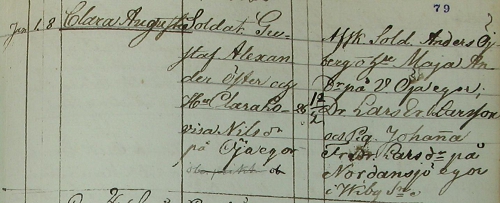 79
Jan 1. 8 Clara Augusta
Soldat. Gu-
staf Alexan
der Öster och
H. Clara Lo-
visa Nilsdr
på Öjaegor
26 12/2
Afsk Sold. Anders Öj
berg o h. Maja An-
Dr på V Öjaegor;
Dr. Lars Er. Larsson
och Pig. Johana
Lars dr på
Nordansjö egor
i Wiby Sn.